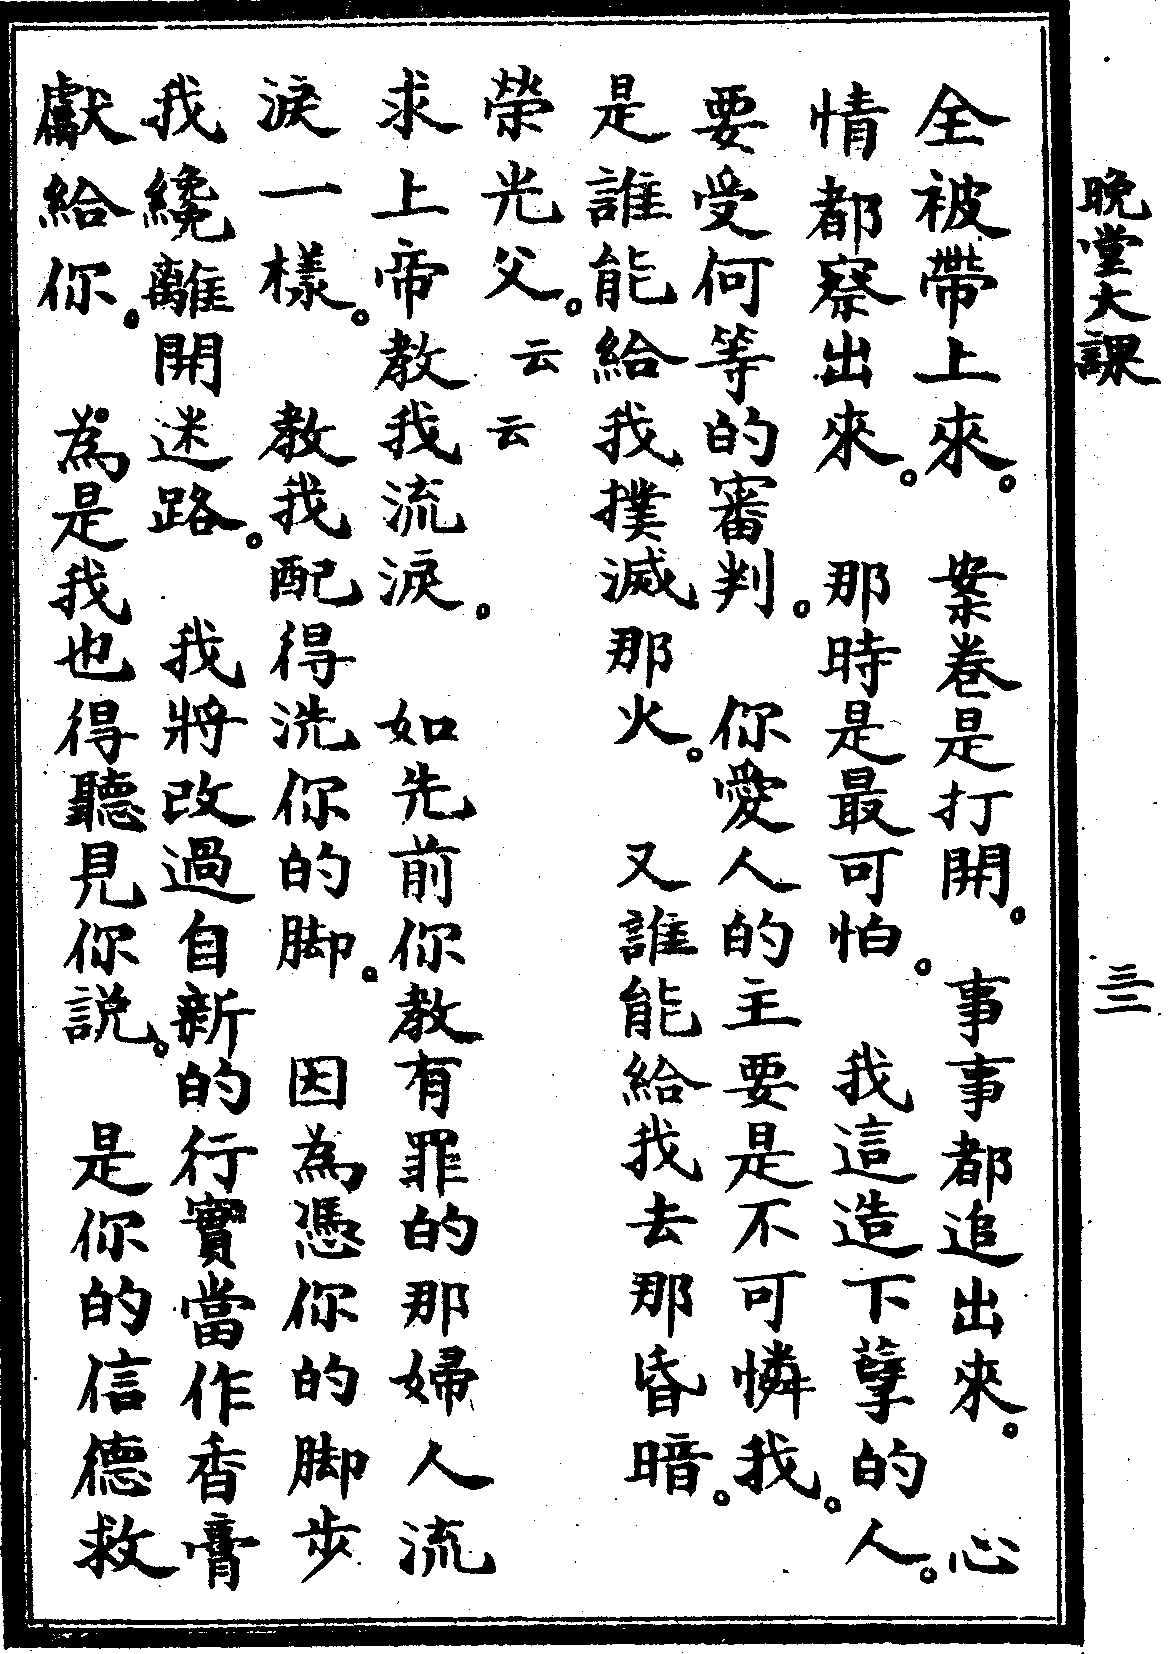 晚堂大課
三
全被帶上來。 案卷是打開。 事事都追出來。 心
情都察出來。 那時是最可怕。 我這造下孽的人。
要受何等的審判。 你愛人的主要是不可憐我。
是誰能給我撲滅那火。 又誰能給我去那昏暗。
榮光父。云云
求上帝教我流淚。 如先前你教有罪的那婦人流
淚一樣。 教我配得洗你的脚。 因為憑你的脚步
我纔離開迷路。 我將改過自新的行實當作香膏
獻給你。 為是我也得聽見你說。 是你的信德救